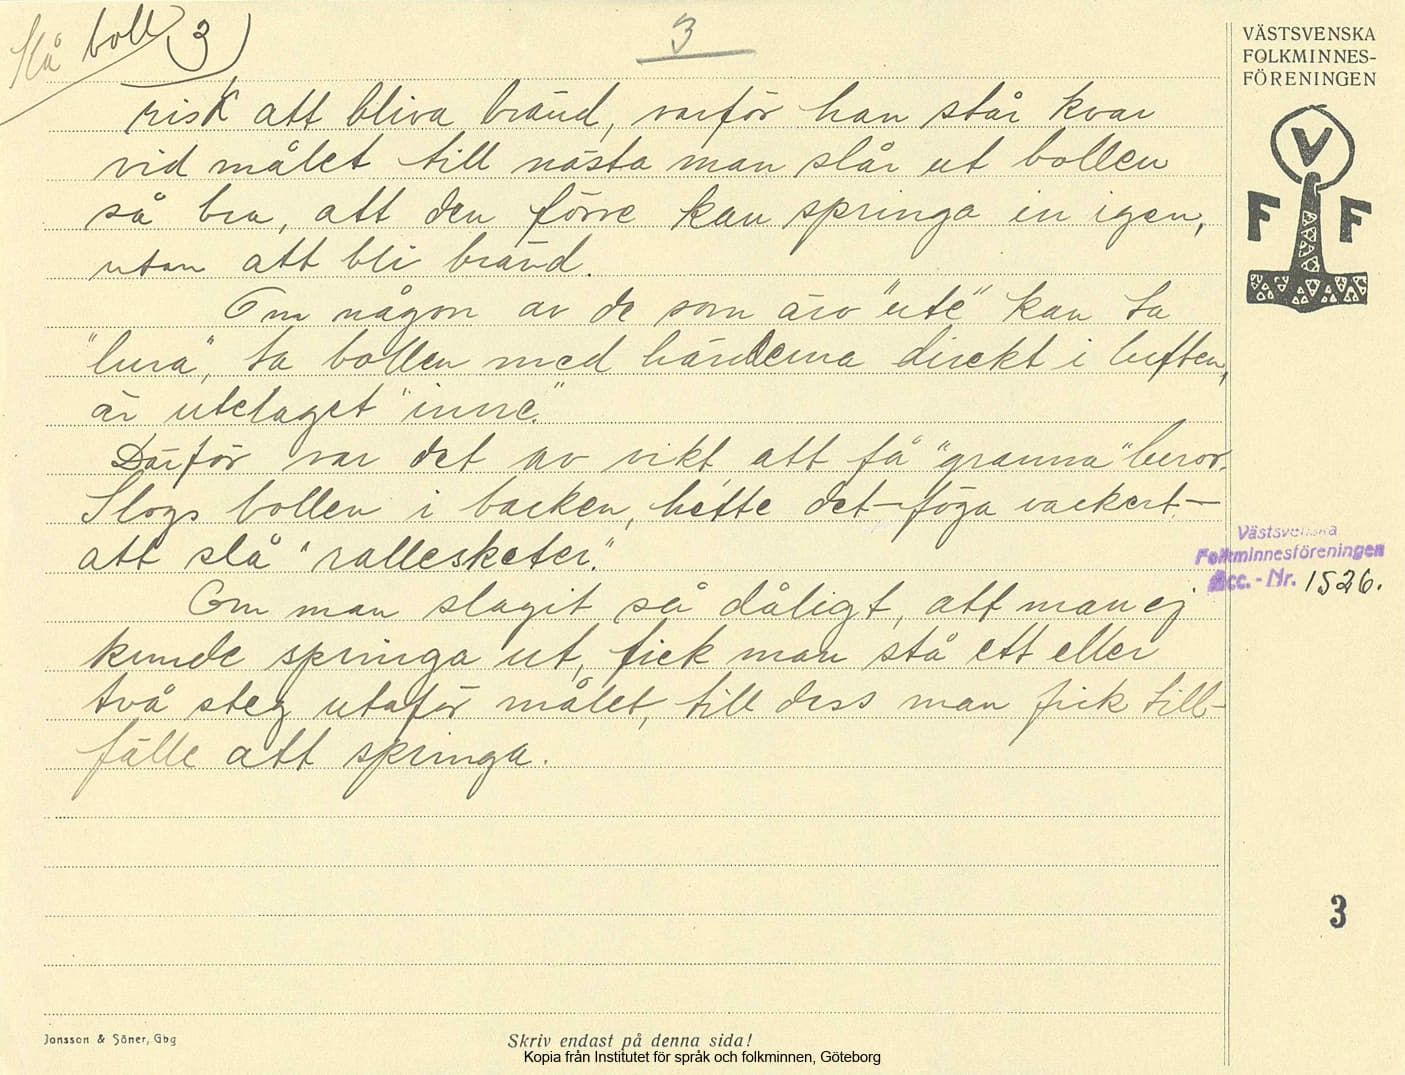 Slå boll 3)
3
VÄSTSVENSKA
FOLKMINNES-
FÖRENINGEN
V
F F
risk att bliva bränd, varför han står kvar
vid målet till nästa man slår ut bollen
så bra, att den förre kan springa in igen,
utan att bli bränd.
Om någon av de som äro "ute" kan ta
"lura", ta bollen med händerna direkt i luften,
är utelaget "inne".
Därför var det av vikt att få "granna" luror.
Slogs bollen i backen, hette det - föga vackert -
att slå "rallesketer".
Om man slagit så dåligt, att man ej
kunde springa ut, fick man stå ett eller
två steg utaför målet, till dess man fick till-
fälle att springa.
Västsvenska
Folkminnesföreningen
Acc.-Nr. 1526.
3
Jonsson & Söner, Gbg
Skriv endast på denna sida!
Kopia från Institutet för språk och folkminnen, Göteborg